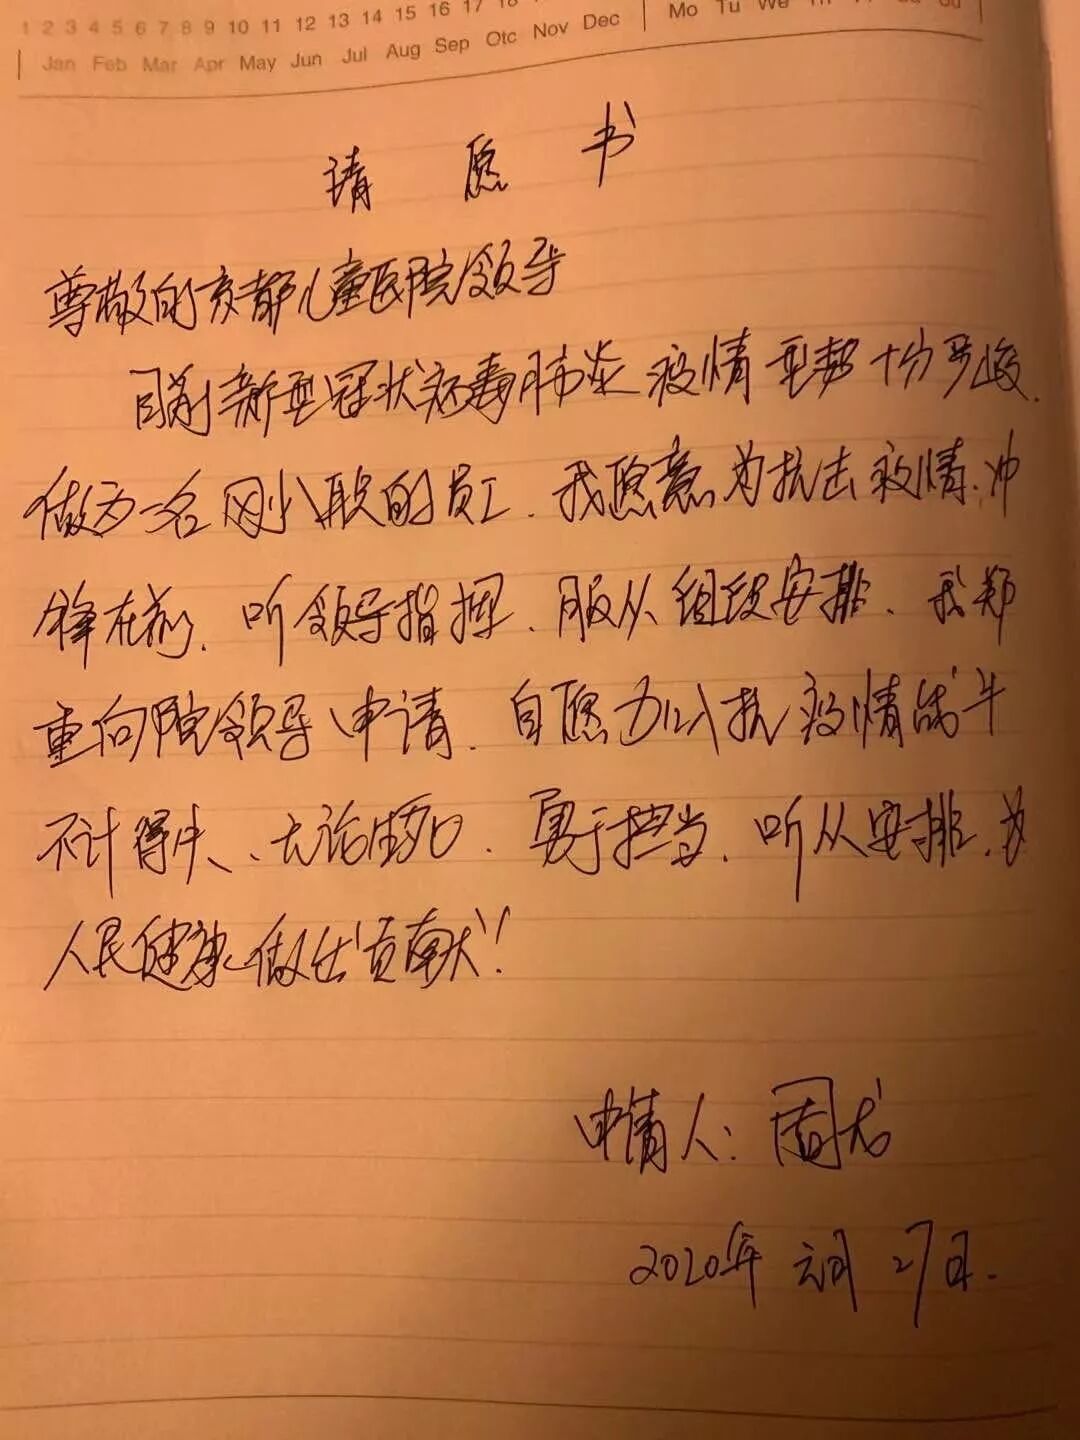 1 2 3 4 5 6 7 8 9 10 11 12 13 14 15 16 17 18
Mo Tu We Th Fr Sa Su
Jan Feb Mar Apr May Jun Jul Aug Sep Otc Nov Dec
请愿书
尊敬的京都儿童医院领导
目前新型冠状病毒肺炎疫情形势十分严峻.
做为一名刚入职的员工.我愿意为抗击疫情.冲
锋在前.听领导指挥.服从组织安排.我郑
重向院领导申请.自愿加入抗疫情战斗
不计得失、无论生死.勇于担当.听从安排.为
人民健康做出贡献!
申请人:周龙
2020年元月27日.